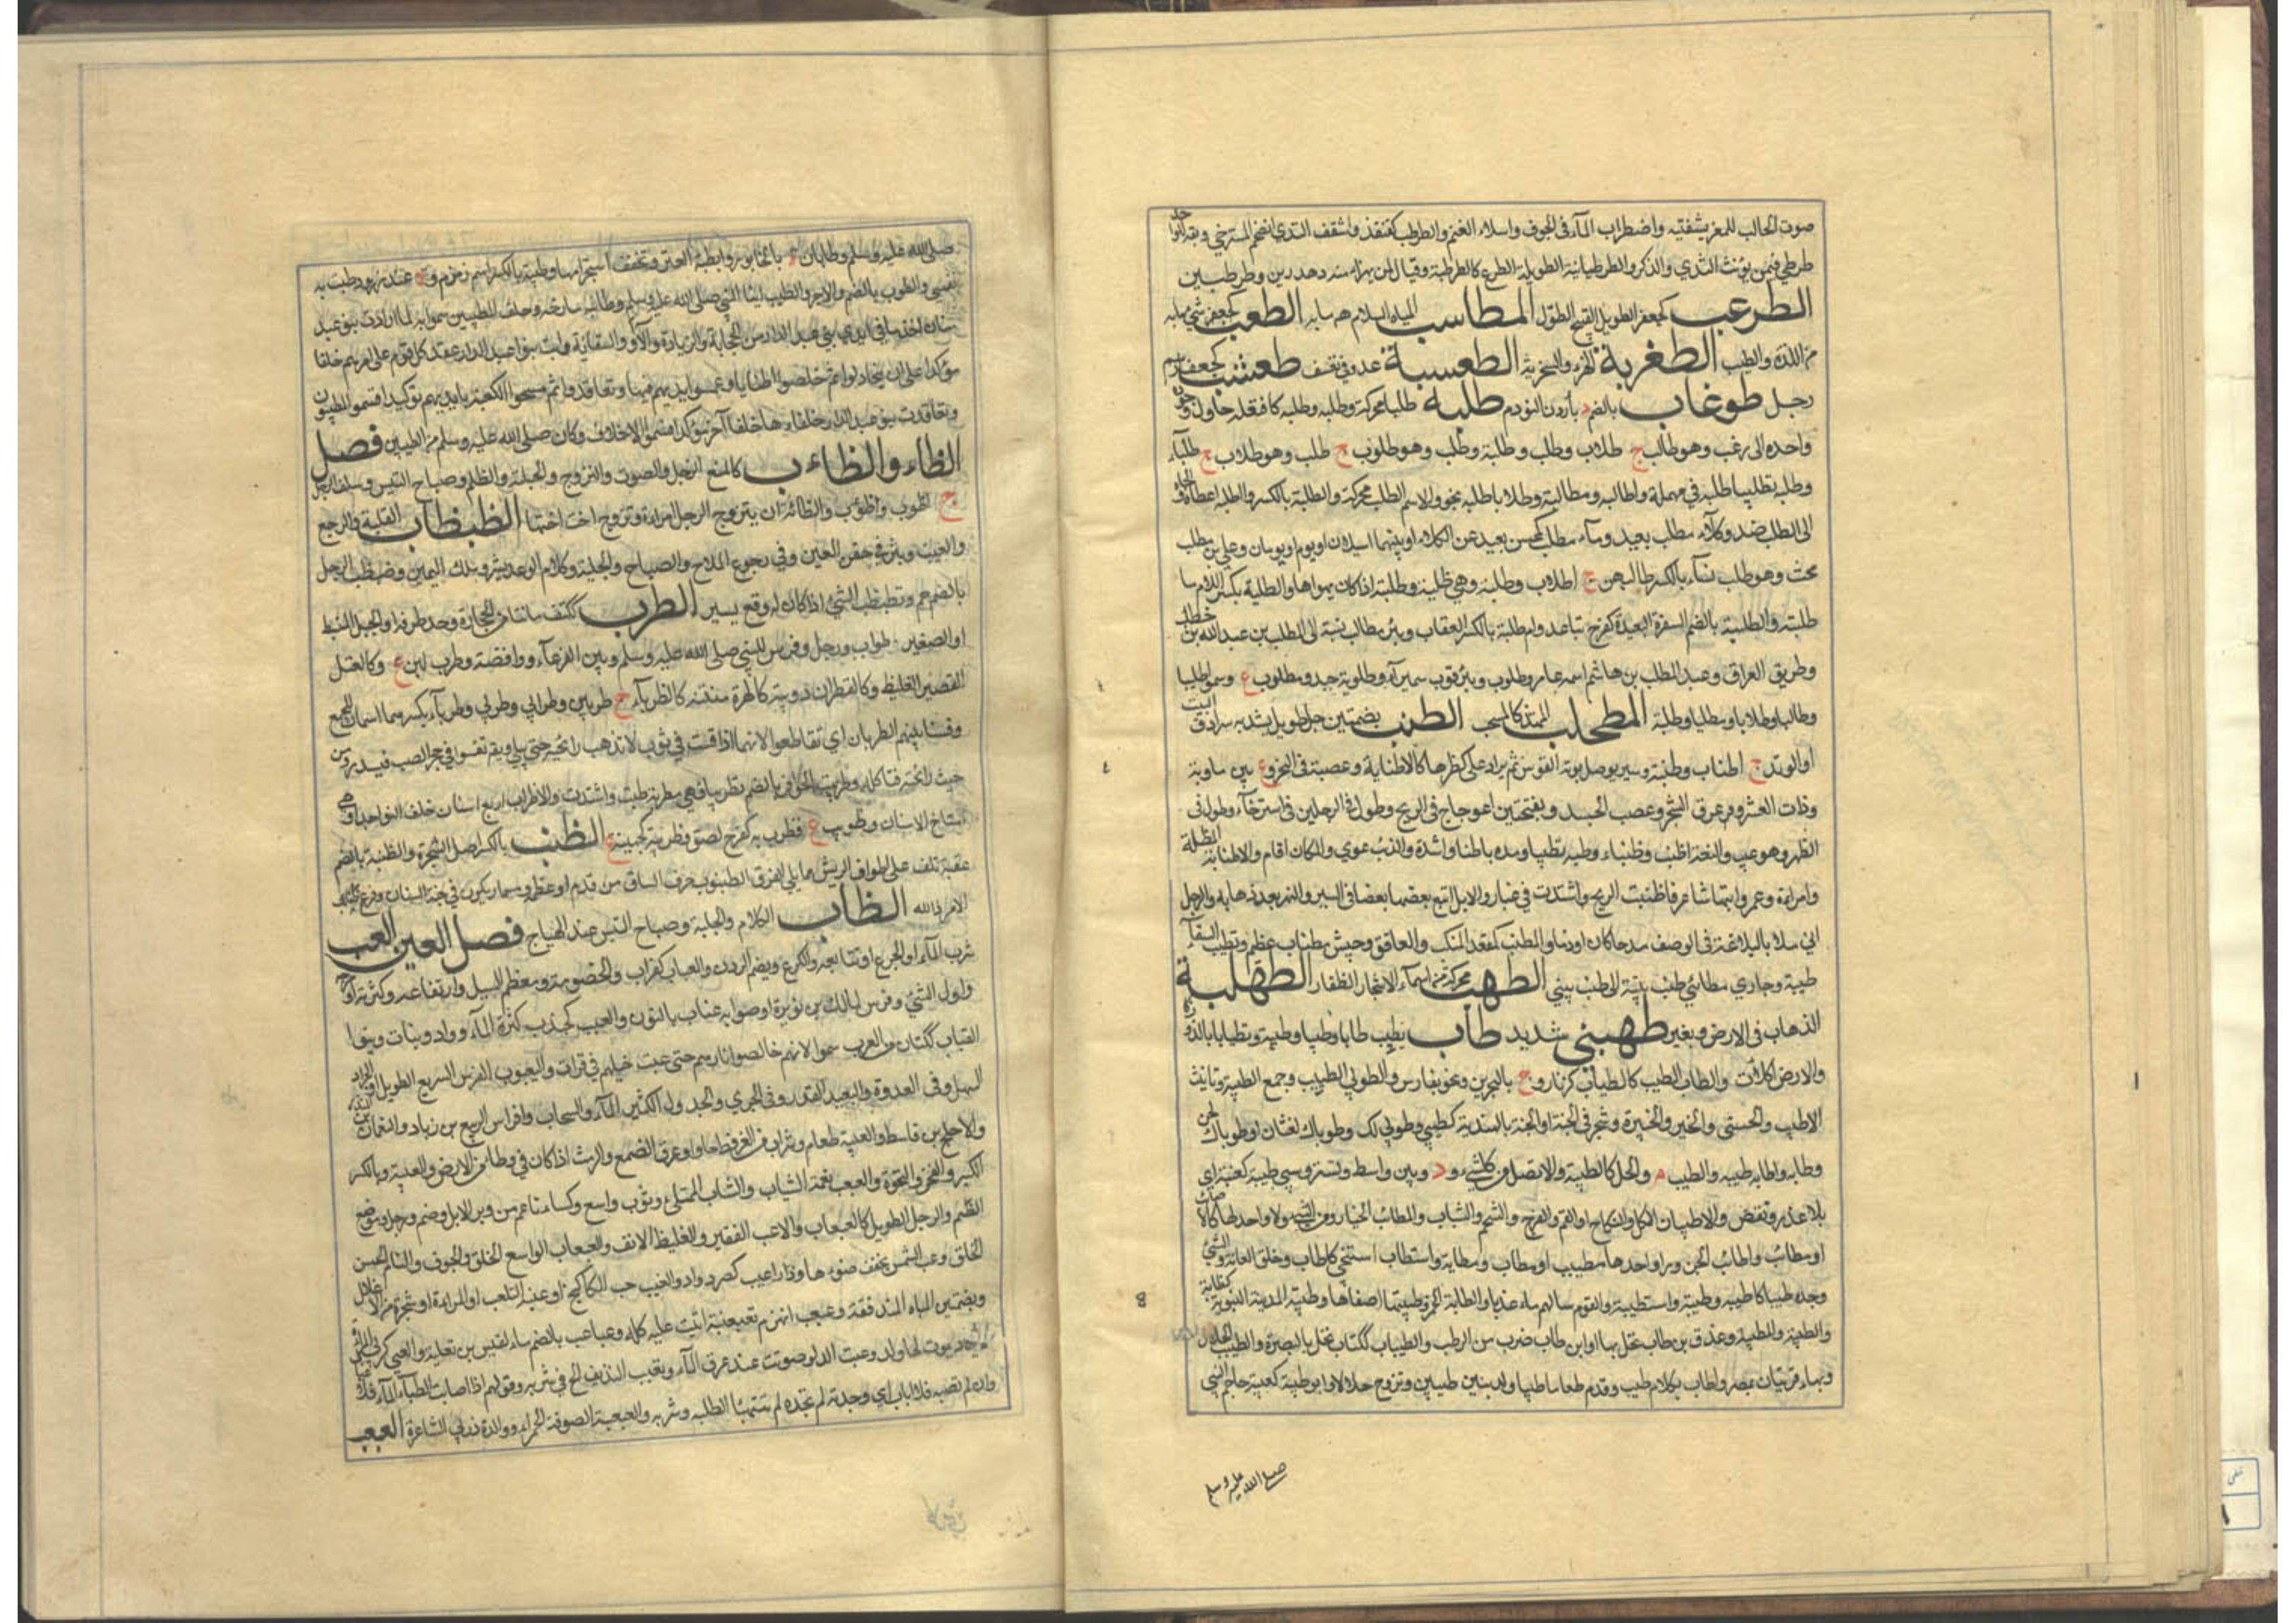 صوت الحالب للمعز بشفتيه واضطراب الماء في الجوف واسلاء الغنم والطرطب كقنفذ واشقف الثدي الضخم المسترخي ويقال لواحد
طرطبي فيمن يؤنث الثدي والذكر والطرطبانية الطويلة الضرع كالطرطبة ويقال لمن يهزأ منه دهدرين وطرطبين
الطرعب كجعفر الطويل القبيح الطول المطاسب المياه السلام هم ما به الطعب كجعفر شيء ما به
من اللذة والطيب الطغربة الهزء والسخرية الطعسبة عدو في تعسف طعشب كجعفر اسم
رجل طوغاب بالضم د بأرزن النودم طلبه طلبا محركة وتطلبه وطلبه كافتعله حاول وجوده
واخذه الى رغب وهو طالب ج طلاب وطلب وطلبة وطلب وهو طلوب ج طلب وهو طلاب ج طلباء
وطلبه تطليبا طلبه في مهملة واطالبه ومطالبة وطلابا طلبه بحق والاسم الطلب محركة والطلبة بالكسر واطلبه اعطاه والجاه
الى الطلب ضد وكلاء مطلب بعيد وماء مطلب كمحسن بعيد عن الكلاء او بينهما ميلان او يوم او يومان وعلي بن مطلب
محدث وهو طلب نساء بالكسر طالبهن ج اطلاب وطلبة وهي طلبه وطلبته اذا كان يهواها والطلبة بكسر اللام ما
طلبته والطلبة بالضم السفرة البعيدة كفرح تباعد وام طلبة بالكسر العقاب وبئر مطلب نسبة الى المطلب بن عبد الله بن حنطب
وطريق العراق وعبد المطلب بن هاشم اسمه عامر وطلوب وبئر قرب سميراء وطلوبة جد ومطلوب ع وسموا طليبا
وطالبا وطلابا ومطلبا وطلبة المطحلب الممتد كالمسحب الطنب بضمتين حبل طويل يشد به سرادق البيت
او الوتد ج اطناب وطنبة وسير يوصل بوتر القوس ثم يدار على كظرها كالاطنابة وعصبة في النحر وع بين ماوية
وذات العشر وعرق الشجر وعصب الجسد وبفتحتين اعوجاج في الريح وطول في الرجلين في استرخاء وطول في
الظهر وهو عيب والنعت اطنب وطنباء وطنبه تطنيبا مده باطنابه وشده والذئب عوى والمكان اقام والاطنابة المظلة
وامراءة وعمرو ابنها شاعر واطنبت الريح اشتدت في غبار والابل اتبع بعضها بعضا في السير والنهر بعد ذهابه والرجل
اتى بالبلاغة في الوصف مدحا كان او ذما والمطنب كمقعد المنكب والعاتق وجيش مطناب عظيم وتطنيب السقاء
طنبه وجاري مطانبي طنب بيته الى طنب بيتي الطهب محركة من اسماء الاشجار الظفار الطهلبة
الذهاب في الارض وبعير طهنبي شديد طاب يطيب طابا وطيبا وطيبة وتطيابا لذ وزكا
والارض اكلأت والطاب الطيب كالطياب كزنار وج بالبحرين ونحو بفارس والطوبى الطيب وجمع الطيبة وتانيث
الاطيب والحسنى والخير والخيرة وشجر في الجنة او الجنة بالهندية كطيبي وطوبى لك وطوباك لغتان او طوباك لحن
وطابه واطابه طيبه والطيب م والحل كالطيبة والافضل من كل شيء ود وبين واسط وتستر وسبي طيبة كعنبة اي
بلا غدر ونقض والاطيبان الاكل والنكاح او الفم والفرج والشحم والشباب والمطائب الخيار ومن الشيء ولا واحد لها كالاطائب
او مطاب واطائب الجزور او واحدها مطيب او مطاب ومطابة واستطاب استنجى كاطاب وحلق العانة والشيء
وجده طيبا كاطيبه وطيبه واستطيبه والقوم سالهم ماء عذبا والطابة الخمر وطيبتها اصفاها وطيبة المدينة النبوية كطابة
والطيبة والمطيبة وعذق بن طاب نخل بها او ابن طاب ضرب من الرطب والطياب ككتاب نخل بالبصرة والطيب الحلال
وبهاء قريتان بمصر واطاب بكلام طيب وقدم طعاما طيبا وولد بنين طيبين وتزوج حلالا وابو طيبة كعيبة حاجم النبي
صلى الله عليه وسلم
صلى الله عليه وسلم وطابان ة بالخابور وايطبة العنز وتخفف استحرامها وطيبة بالكسر اسم زمزم وة عند زرود وطبت به
نفسي والطوب بالضم والآجر والطيب لقب النبي صلى الله عليه وسلم وحلف المطيبين سموا به لما ارادت بنو عبد
مناف اخذ ما في ايدي بني عبد الدار من الحجابة والرفادة واللواء والسقاية وابت بنو عبد الدار عقد كل قوم على امرهم حلفا
مؤكدا على ان لا يتخاذلوا ثم خلطوا اطيابا وغمسوا ايديهم فيها وتعاقدوا ثم مسحوا الكعبة بايديهم توكيدا فسموا المطيبون
وتعاقدت بنو عبد الدار حلفاءها حلفا آخر مؤكدا فسموا الاحلاف وكان صلى الله عليه وسلم من المطيبين فصل
الظاء والظاءب كالمنع الزجل والصوت والتزوج والجلبة والظلم وصياح التيس وسلف الرجل
ج اظوب واظؤب والظائبة ان يتزوج الرجل امراءة وتزوج اخر اختها الظبظاب القلبة والوجع
والعيب وبثر في جفن العين وفي وجوه الملاح والصياح والجلبة وكلام الموعد بشر وبلد باليمن وظبظب الرجل
بالضم حم وتظبظب الشيء اذا كان له وقع يسير الظرب ككتف ما نتأ من الحجارة وحد طرفه او الجبل المنبسط
او الصغير ظراب ورجل وفرس للنبي صلى الله عليه وسلم وبين القرعاء وواقصة وظرب لبن ع وكالعتل
القصير الغليظ وكالقطران دويبة كالهرة منتنة كالظرباء ج ظرابين وظرابي وظربى وظرباء بكسرهما اسمان للجمع
وفسا بينهم الظربان اي تقاطعوا لانها اذا فست في ثوب لا تذهب رائحته حتى يبلى ويقم تفسو في جحر الضب فيسدر من
خبث رائحته فتاكله وظربت الحوافر بالضم تظريبا فهي مظربة صلبت واشتدت والاظراب اربع اسنان خلف النواجذ او هي
اسناخ الاسنان وظريب ع وظرب به كفرح لصق وظريبة كجهينة ع الظنب بالكسر اصل الشجرة والظنبة بالضم
عقبة تلف على اطراف الريش مما يلي الفوق الظنبوب حرف الساق من قدم او عظمه ومسمار يكون في جبة السنان وقرع ظنابيب
الامر ذلله الظاب الكلام والجلبة وصياح التيس عند الهياج فصل العين العب
شرب الماء او الجرع او تتابعه والكرع وبضم الردن والعباب كغراب والخضومة ومعظم السيل وارتفاعه وكثرته او موجه
واول الشيء وفرس لمالك بن نويرة او صوابه عناب بالنون والعبب كجندب كثرة الماء وواد ونبات وبنوا
العباب ككتان من العرب سموا لانهم خالطوا فارس حتى عبت خيلهم في فرات واليعبوب الفرس السريع الطويل او الجواد
السهل في العدوة والبعيد القدر في الجري والجدول الكثير الماء والسحاب وافراس الربيع بن زياد والنعمان بن المنذر
والاجلح بن قاسط والعبيبة طعام وشراب من العرفط حلو او عرق الصمغ والرمث اذا كان في وطاء من الارض والعبية وبالكسر
الكبر والفخر والنخوة والعبعب نعمة الشباب والشاب الممتلئ وثوب واسع وكساء ناعم من وبر الابل وصنم ورجل وموضع
الصنم والرجل الطويل كالعبعاب والاعب الفقير والغليظ الانف والعبعاب الواسع الحلق والجوف والتام الحسن
الخلق وعب الشمس يخفف ضوءها وذو اعيب كصرد واد والعنب حب الكاكنج او عنب الثعلب او الراءة او شجرة من الاغلاث
وبضمتين المياه المندفقة وعبعب انهزم تعبعبته اتيت عليه كله وعباعب بالضم ماء لقيس بن ثعلبة والعبى كربى المراة
لا يكاد يموت لها ولد وعبت الدلو صوتت عند غرف الماء وتعبب النبيذ الح في شربه وقولهم اذا اصابت الظباء الماء فلا عباب
وان لم تصبه فلا اباب اي وجدته لم تعب وان لم تجده لم تتهيأ لطلبه وشربه والعبعبة الصوفة الحمراء ووالدة درنى الشاعرة العبعب